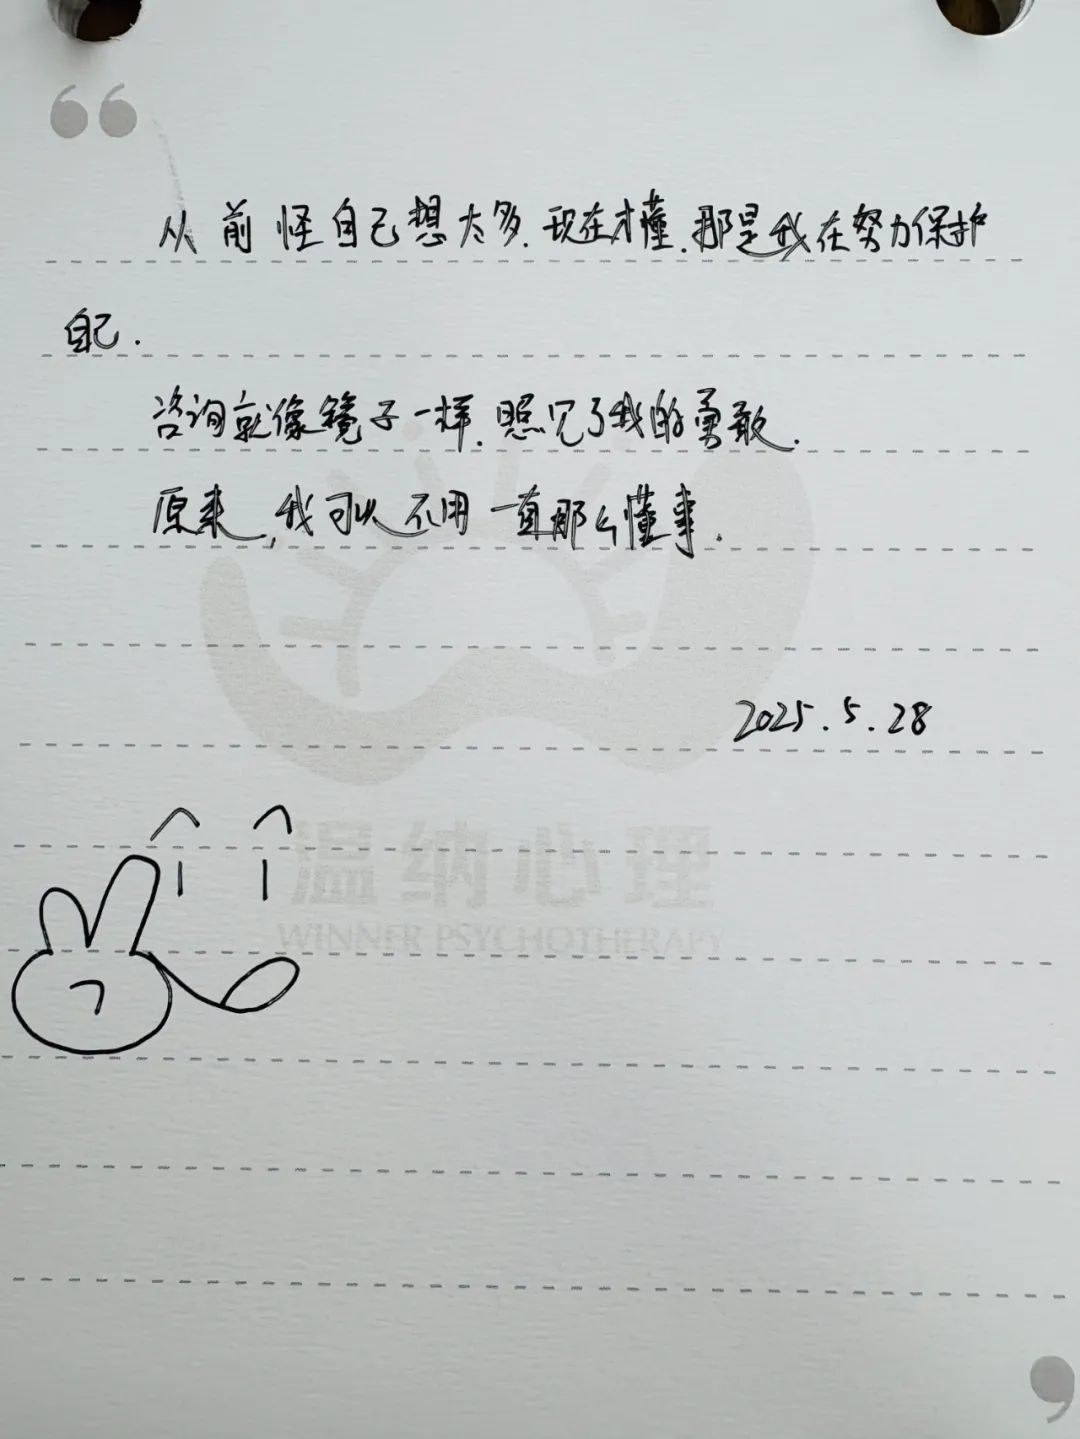 从前怪自己想太多.现在才懂.那是我在努力保护
自己.
咨询就像镜子一样.照见了我的勇敢.
原来,我可以不用一直那么懂事.
2025.5.28
温纳心理
WINNER PSYCHOTHERAPY